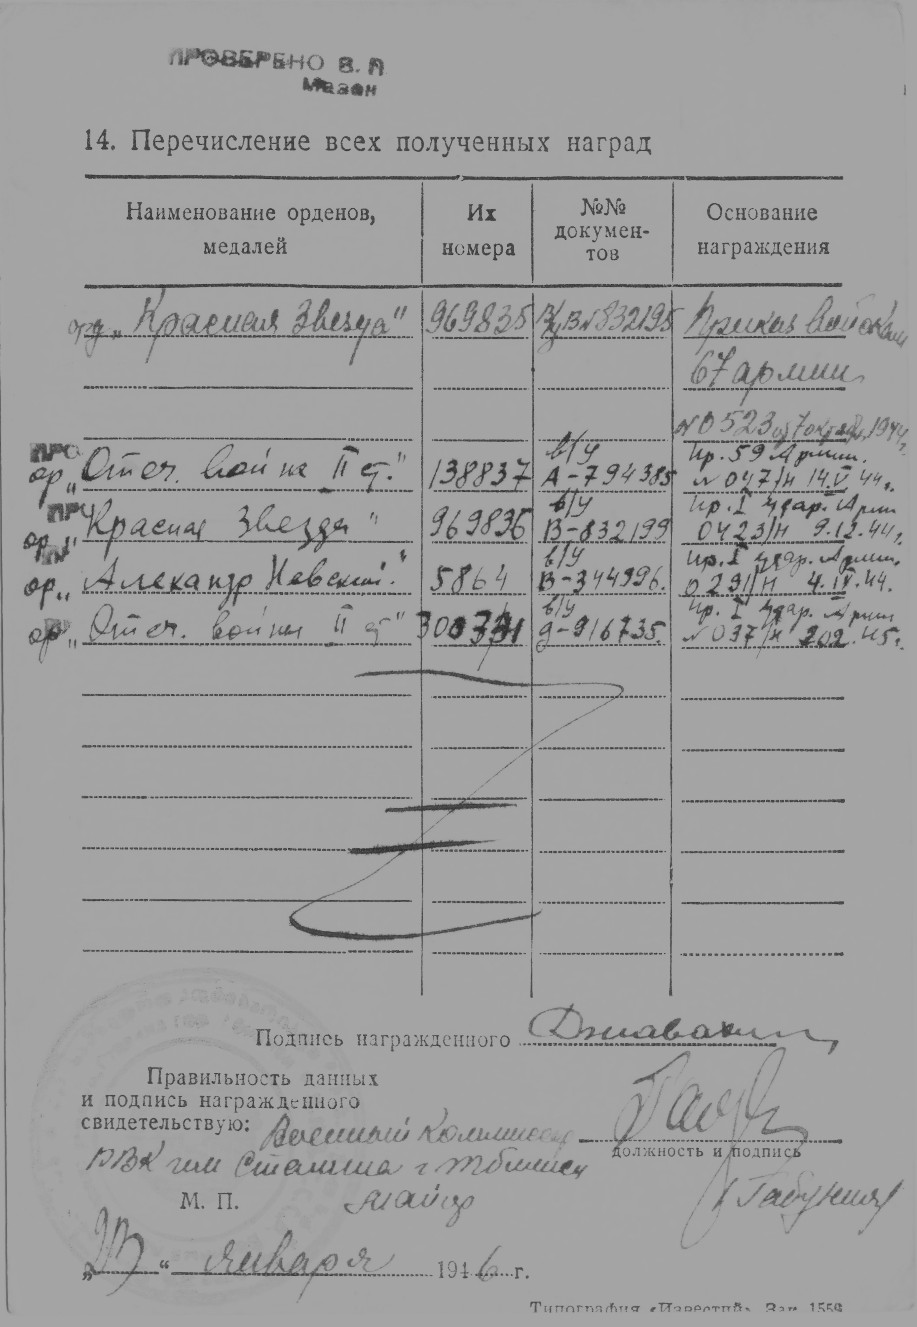 ПРОВЕРЕНО В. Л
Мазан
14. Перечисление всех полученных наград
Наименование орденов, медалей
Их номера
№№ документов
Основание награждения
орд „Красная Звезда" 969835 В№832195 Приказ Войскам
67 армии
№ 0523 от 7 октября 1944
ПРО
ор „Отеч. войны II ст." 138837 в/у А-794385 Пр. 59 Армии. № 047/н 14.V.44г.
ПР
ор „Красная Звезда" 969836 в/у В-832199 Пр. I удар. Арм 0423/н 9.12.44г.
ор. „Александр Невский." 5864 в/у В-344996. Пр. I удар. Арми. 0291/н 4.IX.44.
ор. „Отеч. войны II ст" в/у 916735. Пр. I удар. Арми № 037/н 2.02.45г.
Подпись награжденного
Правильность данных
и подпись награжденного
свидетельствую: Военный Комиссар
должность и подпись
РВК им Сталина г Тбилиси
М. П. майор
Габуния
января 1946 г.
Типография «Известий». Зак. 1559